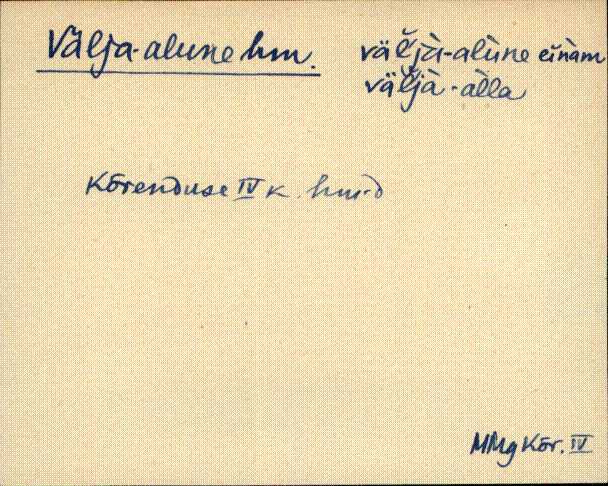 Välja-alune hm. väĺjà-alùne einàm
väĺjà-àlla
Kõrenduse IV k. hm-d
MMg Kõr. IV